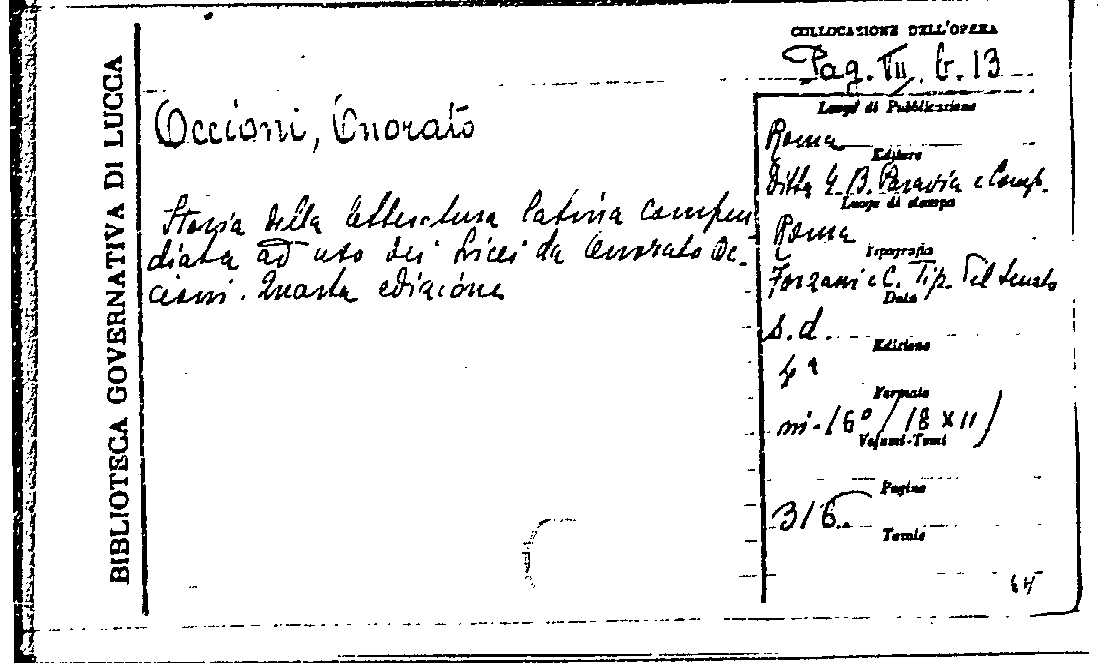 BIBLIOTECA GOVERNATIVA DI LUCCA
COLLOCAZIONE DELL'OPERA
Pag. VII. G. 13
Occioni, Onorato
Storia della letteratura latina compen
diata ad uso dei Licei da Onorato Oc-
cioni. Quarta edizione
Luogo di Pubblicazione
Roma
Editore
Ditta G. B. Paravia e Comp.
Luogo di stampa
Roma
Tipografia
Forzani e C. Tip. del Senato
Data
s.d.
Edizione
4ª
Formato
in-16° /18 x 11/
Volumi-Tomi
Pagine
316.
Tavole